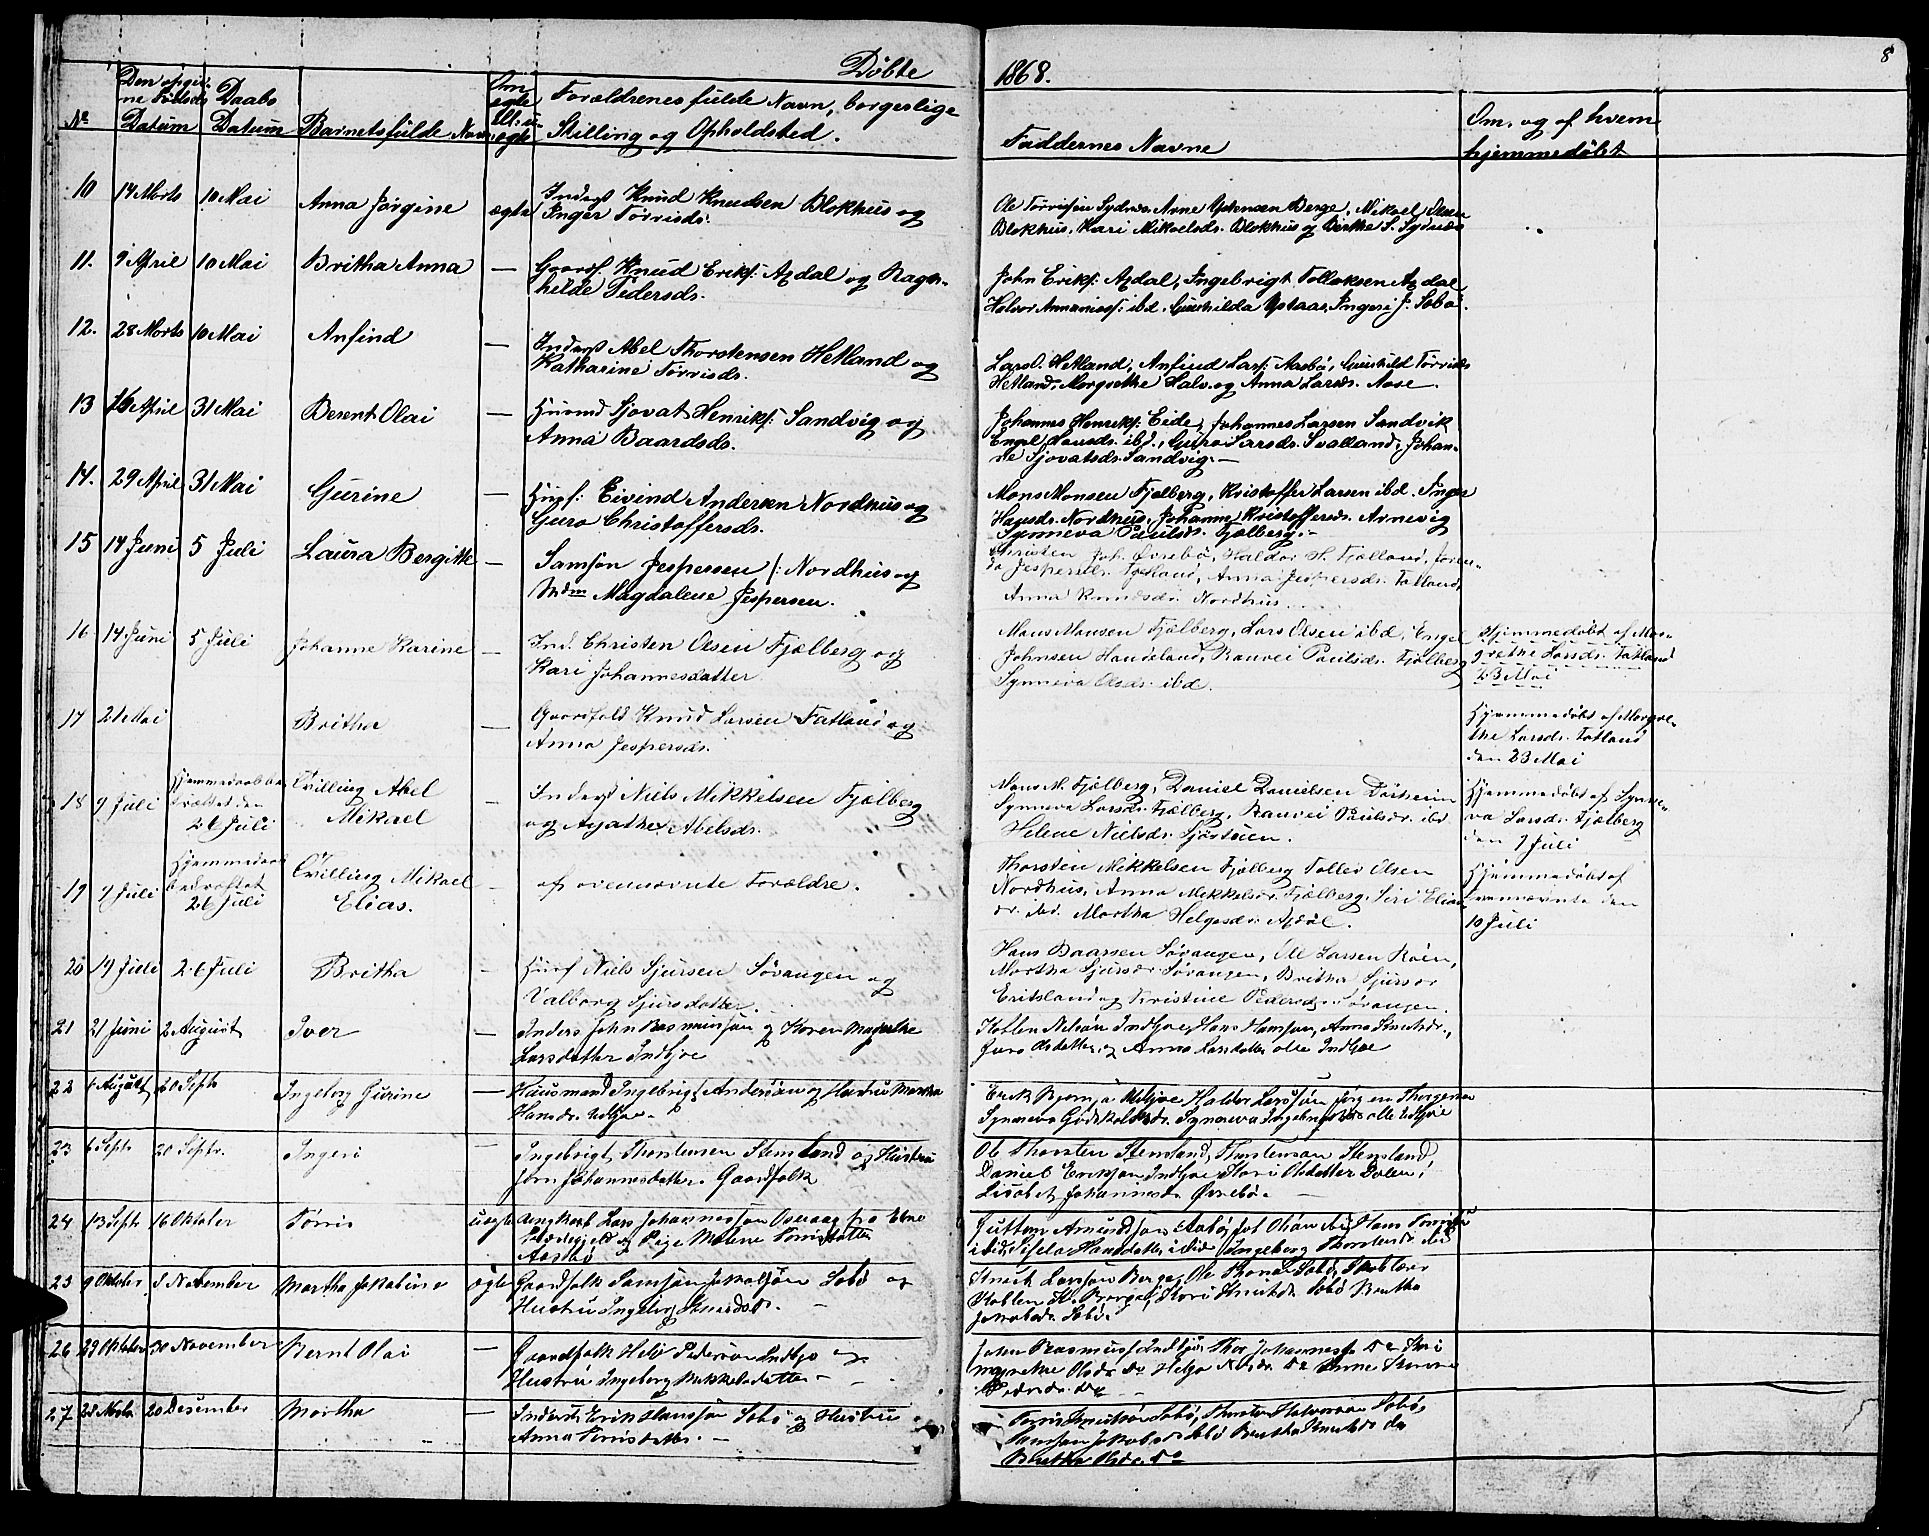 Døbte
1868.
8
No
Den opgiv-
ne Fødsels
Datum
Daabs
Datum
Barnets fulde Navn
Om
ægte
ell. u-
ægte
Forældrenes fulde Navn, borgerlige
Stilling og Opholdsted.
Faddernes Navne
Om, og af hvem
hjemmedøbt
10 14 Marts 10 Mai Anna Jørgine ægte Inderst Knud Knudsen Blokhus og
Inger Tørrisds.
Ole Tørrisen Sydnes, Arne Berge, Mikael
Blokhus, Kari Mikaelsds. Blokhus og Berthe S. Sydnes
11. 9 April 10 Mai Britha Anna — Gaardf. Knud Eriks. Axdal og Ragn-
hilde Pedersds.
John Eriks: Axdal, Ingebrigt Tollaksen Axdal
Halvor ibd. Gunhilda Ystaas, Ingeri J. Sæbø.
12. 28 Marts 10 Mai Anfind — Inderst Abel Thorstensen Hetland og
Katharine Tørrisds.
Lars O. Hetland, Anfind Lars: Aasbø, Gunhild Tørrisds
Hetland, Margrethe og Anna Larsds. Aase.
13 16 April 31 Mai Berent Olai — Husmd Sjovat Henriks: Sandvig og
Anna Baardsds.
Johannes Henriks: Eide, Johannes Larsen Sandvik
Engel ibd., Guro Larsds. Svalland, Johan-
ne Sjovatsds. Sandvig. —
14. 29 April 31 Mai Gurine — Husf: Eivind Andersen Nordhus og
Guro Christoffersds.
Mons Monsen Fjelberg, Kristoffer Larsen ibd. Inger
Hansds. Nordhus, Johanne Kristoffersds. Arnevig
Synneva Paulsds. Fjelberg. —
15 14 Juni 5 Juli Laura Bergitte — Samson Jespersen /: Nordhus og
Magdalene Jespersen.
Christen Joh. Øvrebø, Haldor H. Fjelland, Joren-
da Jespersds. Fatland, Anna Jespersds. Fatland,
Anna Knudsds. Nordhus
16 14 Juni 5 Juli Johanne Karine — Ind. Christen Olsen Fjelberg og
Kari Johannesdatter
Mons Monsen Fjelberg, Lars Olsen ibd, Engel
Johnsen Handeland, Ranvei Paulsds. Fjelberg
Synneva Olsds. ibd.
Hjemmedøbt af Mar-
grethe Larsds. Fatland
23 Mai
17 21 Mai Britha — Gaardfolk Knud Larsen Fatland og
Anna Jespersds.
Hjemmedøbt af Margre-
the Larsds. Fatland
den 23 Mai
18 9 Juli Hjemmedaab be-
kræftet den
26 Juli Tvilling Abel
Mikael — Inderst Niels Mikkelsen Fjelberg
og Agathe Abelsds.
Mons M. Fjelberg, Daniel Danielsen
Synneva Larsds. Fjelberg, Ranvei Paulsds. ibd
Helene Nielsds.
Hjemmedøbt af Synne-
va Larsds. Fjelberg
den 9 Juli
19 9 Juli Hjemmedaab
bekræftet
26 Juli Tvilling Mikael
Elias. — af ovennævnte Forældre.
Thorsten Mikkelsen Fjelberg, Tollev Olsen
Nordhus, Anna Mikkelsds. Fjelberg, Siri Elias-
ds. ibd. Martha Helgesds. Axdal.
Hjemmedøbt af
fornævnte den
10 Juli
20 19 Juli 26 Juli Britha — Husf Niels Sjursen Sørangen og
Valborg Sjursdatter
Hans Baarsen Sørangen, Ole Larsen Røen,
Martha Sjursds. Sørangen, Britha Sjursds
Eritsland og Kristine Pedersds. Sørangen.
21 21 Juni 2 August Iver — Inders John Rasmusson og Karen Magrethe
Larsdatter Indbjoe
Kolben Nelson Indbjoe, Hans Hansson, Anna Knutsdr.,
Guro Olsdatter og Anna Larsdatter alle Indbjoe
22 6 August 20 Septr Ingeborg Gurine — Husmand Ingebrigt Anderson og Hustru Martha
Hansdr.
Erik Bjørnsen Utbjoe Haldor Larsson Jørgen Thorgersen
Synneva Godskalksdr. Synneva Ingebrigtsdr alle Utbjoe
23 6 Septr 20 Septr. Ingeri — Ingebrigt Thorstensen Stensland og Hustru
Jørn Johannesdatter. Gaardfolk
Ole Thorsten Stensland, Thorstenson Stensland
Daniel Erikson Indbjoe, Kari Olsdatter Dalen,
Lisabet Johannesdr Øvrebø.
24 13 Septr 16 Oktober Tørris uægte Ungkarl Lars Johannesson Osvaag fra Etne
Præstegjeld og Pige Malene Tørrisdatter
Aasbø
Guttorm Amundson Aasbø, ibid Hans Tørrison
ibid, Sissela Hansdatter ibid Ingeborg Thorstensdr ibid
25 9 Oktober 8 November Martha Jakobine ægte Gaardfolk Samson Jakobson Sæbø og
Hustru Ingeborg Knudsdr. —
Knut Larsson Berge, Ole Sæbø,
Kolben K. Berge, Kari Knutsdr. Sæbø Britha
Jakobsdr. Sæbø.
26 29 Oktober 30 November Bernt Olai — Gaardfolk Helje Pederson Indbjo og
Hustru Ingeborg Mikkelsdatter —
John Rasmuss Indbjoe, Johannes
Magrethe Olsdr. do Helga do Anne
Pedersdr. do
27 28 Novbr 20 Desember Martha — Inderst Erik Hansson Sæbø og Hustru
Anna Tørrisdatter. —
Tørris Knutson Sæbø, Thorsten Halvorson Sæbø,
Samson Jakobson Sæbø Britha Knutsdr do
Britha Olsdr. do